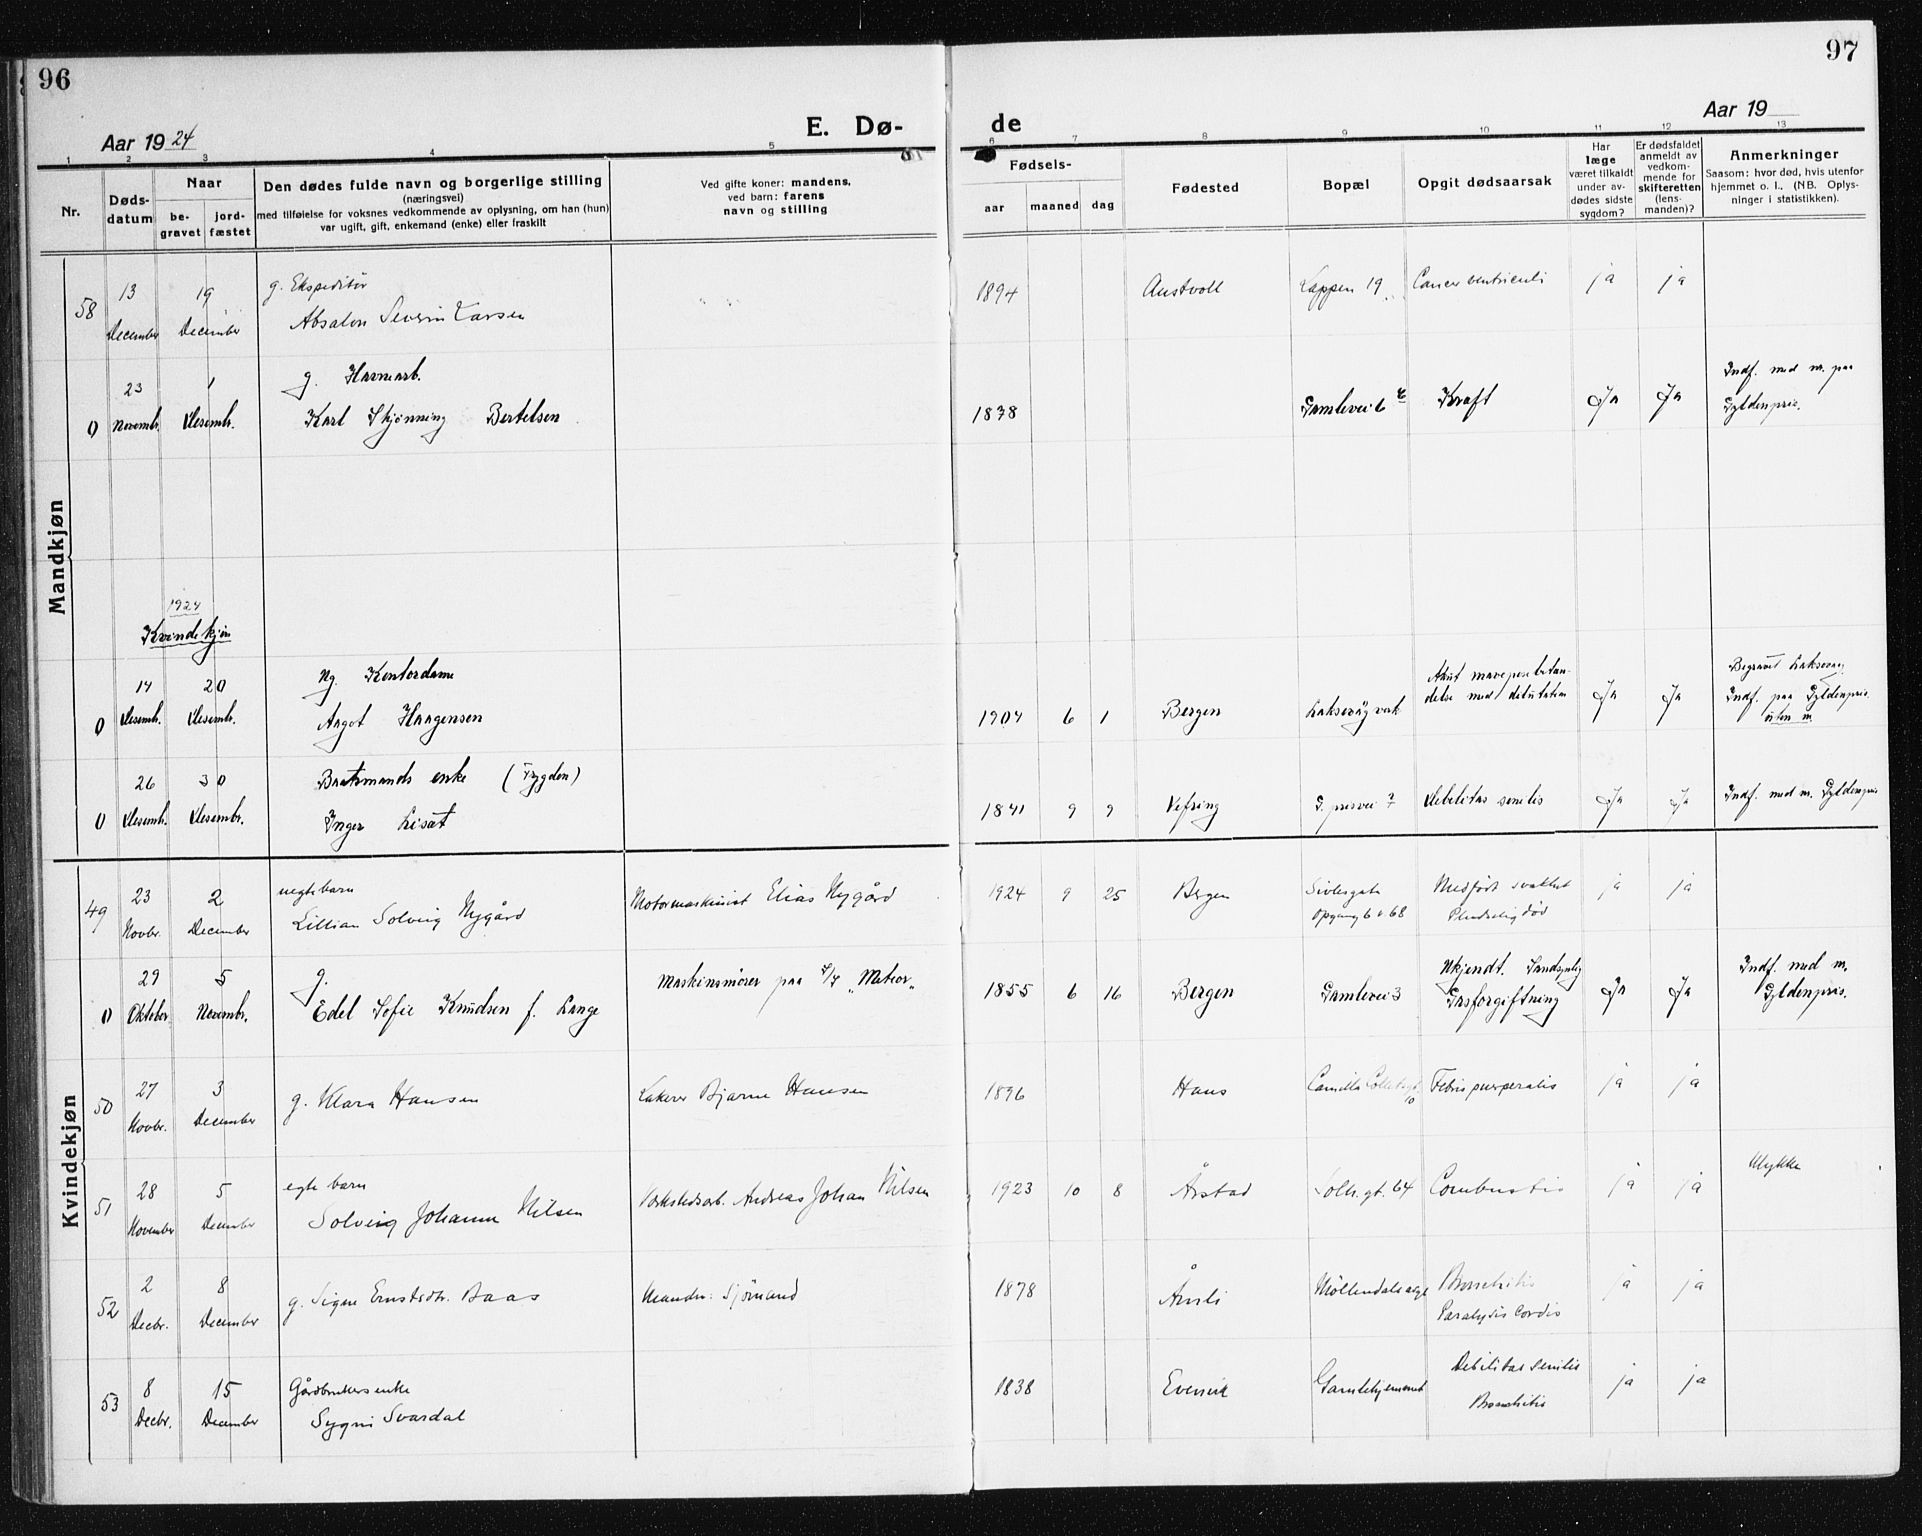 96
97
Aar 1924
E. Dø-
de
Aar 19
1 2 3 4 5 6 7 8 9 10 11 12 13
Nr.
Døds-
datum
Naar
be-
gravet
jord-
fæstet
Den dødes fulde navn og borgerlige stilling
(næringsvei)
med tilføielse for voksnes vedkommende av oplysning, om han (hun)
var ugift, gift, enkemand (enke) eller fraskilt
Ved gifte koner: mandens,
ved barn: farens
navn og stilling
Fødsels-
aar maaned dag
Fødested
Bopæl
Opgit dødsaarsak
Har
læge
været tilkaldt
under av-
dødes sidste
sygdom?
Er dødsfaldet
anmeldt av
vedkom-
mende for
skifteretten
(lens-
manden)?
Anmerkninger
Saasom: hvor død, hvis utenfor
hjemmet o. l., (NB. Oplys-
ninger i statistikken).
Mandkjøn
58 13 December 19 December g. Ekspeditør
Absalon Severin Larsen 1894 Austvoll Lappen 19 Cancer ventriculi ja ja
0 23 Novembr. 1 Desembr. g. Havnearb.
Karl Skjønning Bertelsen 1838 Gamlevei 6 Kraft Ja Ja Indf. med nr. paa
Gyldenpris.
1924
Kvindekjøn
0 14 Desembr. 20 Desembr. Ug. Kontordame
Aagot Haagensen 1904 6 1 Bergen Laksevåg verk Akut maveposebetæn-
delse med Ja Ja Begravet Laksevaag
Indf. paa Gyldenpris
uten nr.
0 26 Desembr. 30 Desembr. Baatsmands enke (Trygden)
Inger Lisæt 1841 9 9 Vefring G. prisvei 7 Debilitas senilis Ja Ja Indf. med nr. Gyldenpris
Kvindekjøn
49 23 Novbr. 2 December uegte barn
Lillian Solveig Nygård Motormaskinist Elias Nygård 1924 9 25 Bergen Sivlesgate
Opgang 6 v 68 Medfødt svakhet
Pludselig død ja ja
0 29 Oktober 5 Novembr. g.
Edel Sofie Knudsen f. Lange Maskinsmører paa S/S "Meteor" 1855 6 16 Bergen Gamlevei 3 Ukjendt. Sandsynlig
Gasforgiftning Ja Ja Indf. med nr.
Gyldenpris.
50 27 Novbr. 3 December g. Klara Hansen Lakerer Bjarne Hansen 1896 Haus Camilla Colletsgt. 10 Febris puerperalis ja ja
51 28 November 5 December egte barn
Solveig Johanne Nilsen Verkstedsarb. Andreas Johan Nilsen 1923 10 8 Årstad Solh.gt. 64 Combustio ja ja Ulykke
52 2 Decbr. 8 December g. Signe Ernstsdtr. Baas Sjømand 1878 Åmli Møllendalsalge Bronchitis
Paralysis Cordis ja ja
53 8 Decbr. 15 December Gårdbrukers enke
Sygni Svardal 1838 Evenvik Gamlehjemmet Debilitas senilis
Bronchitis ja ja